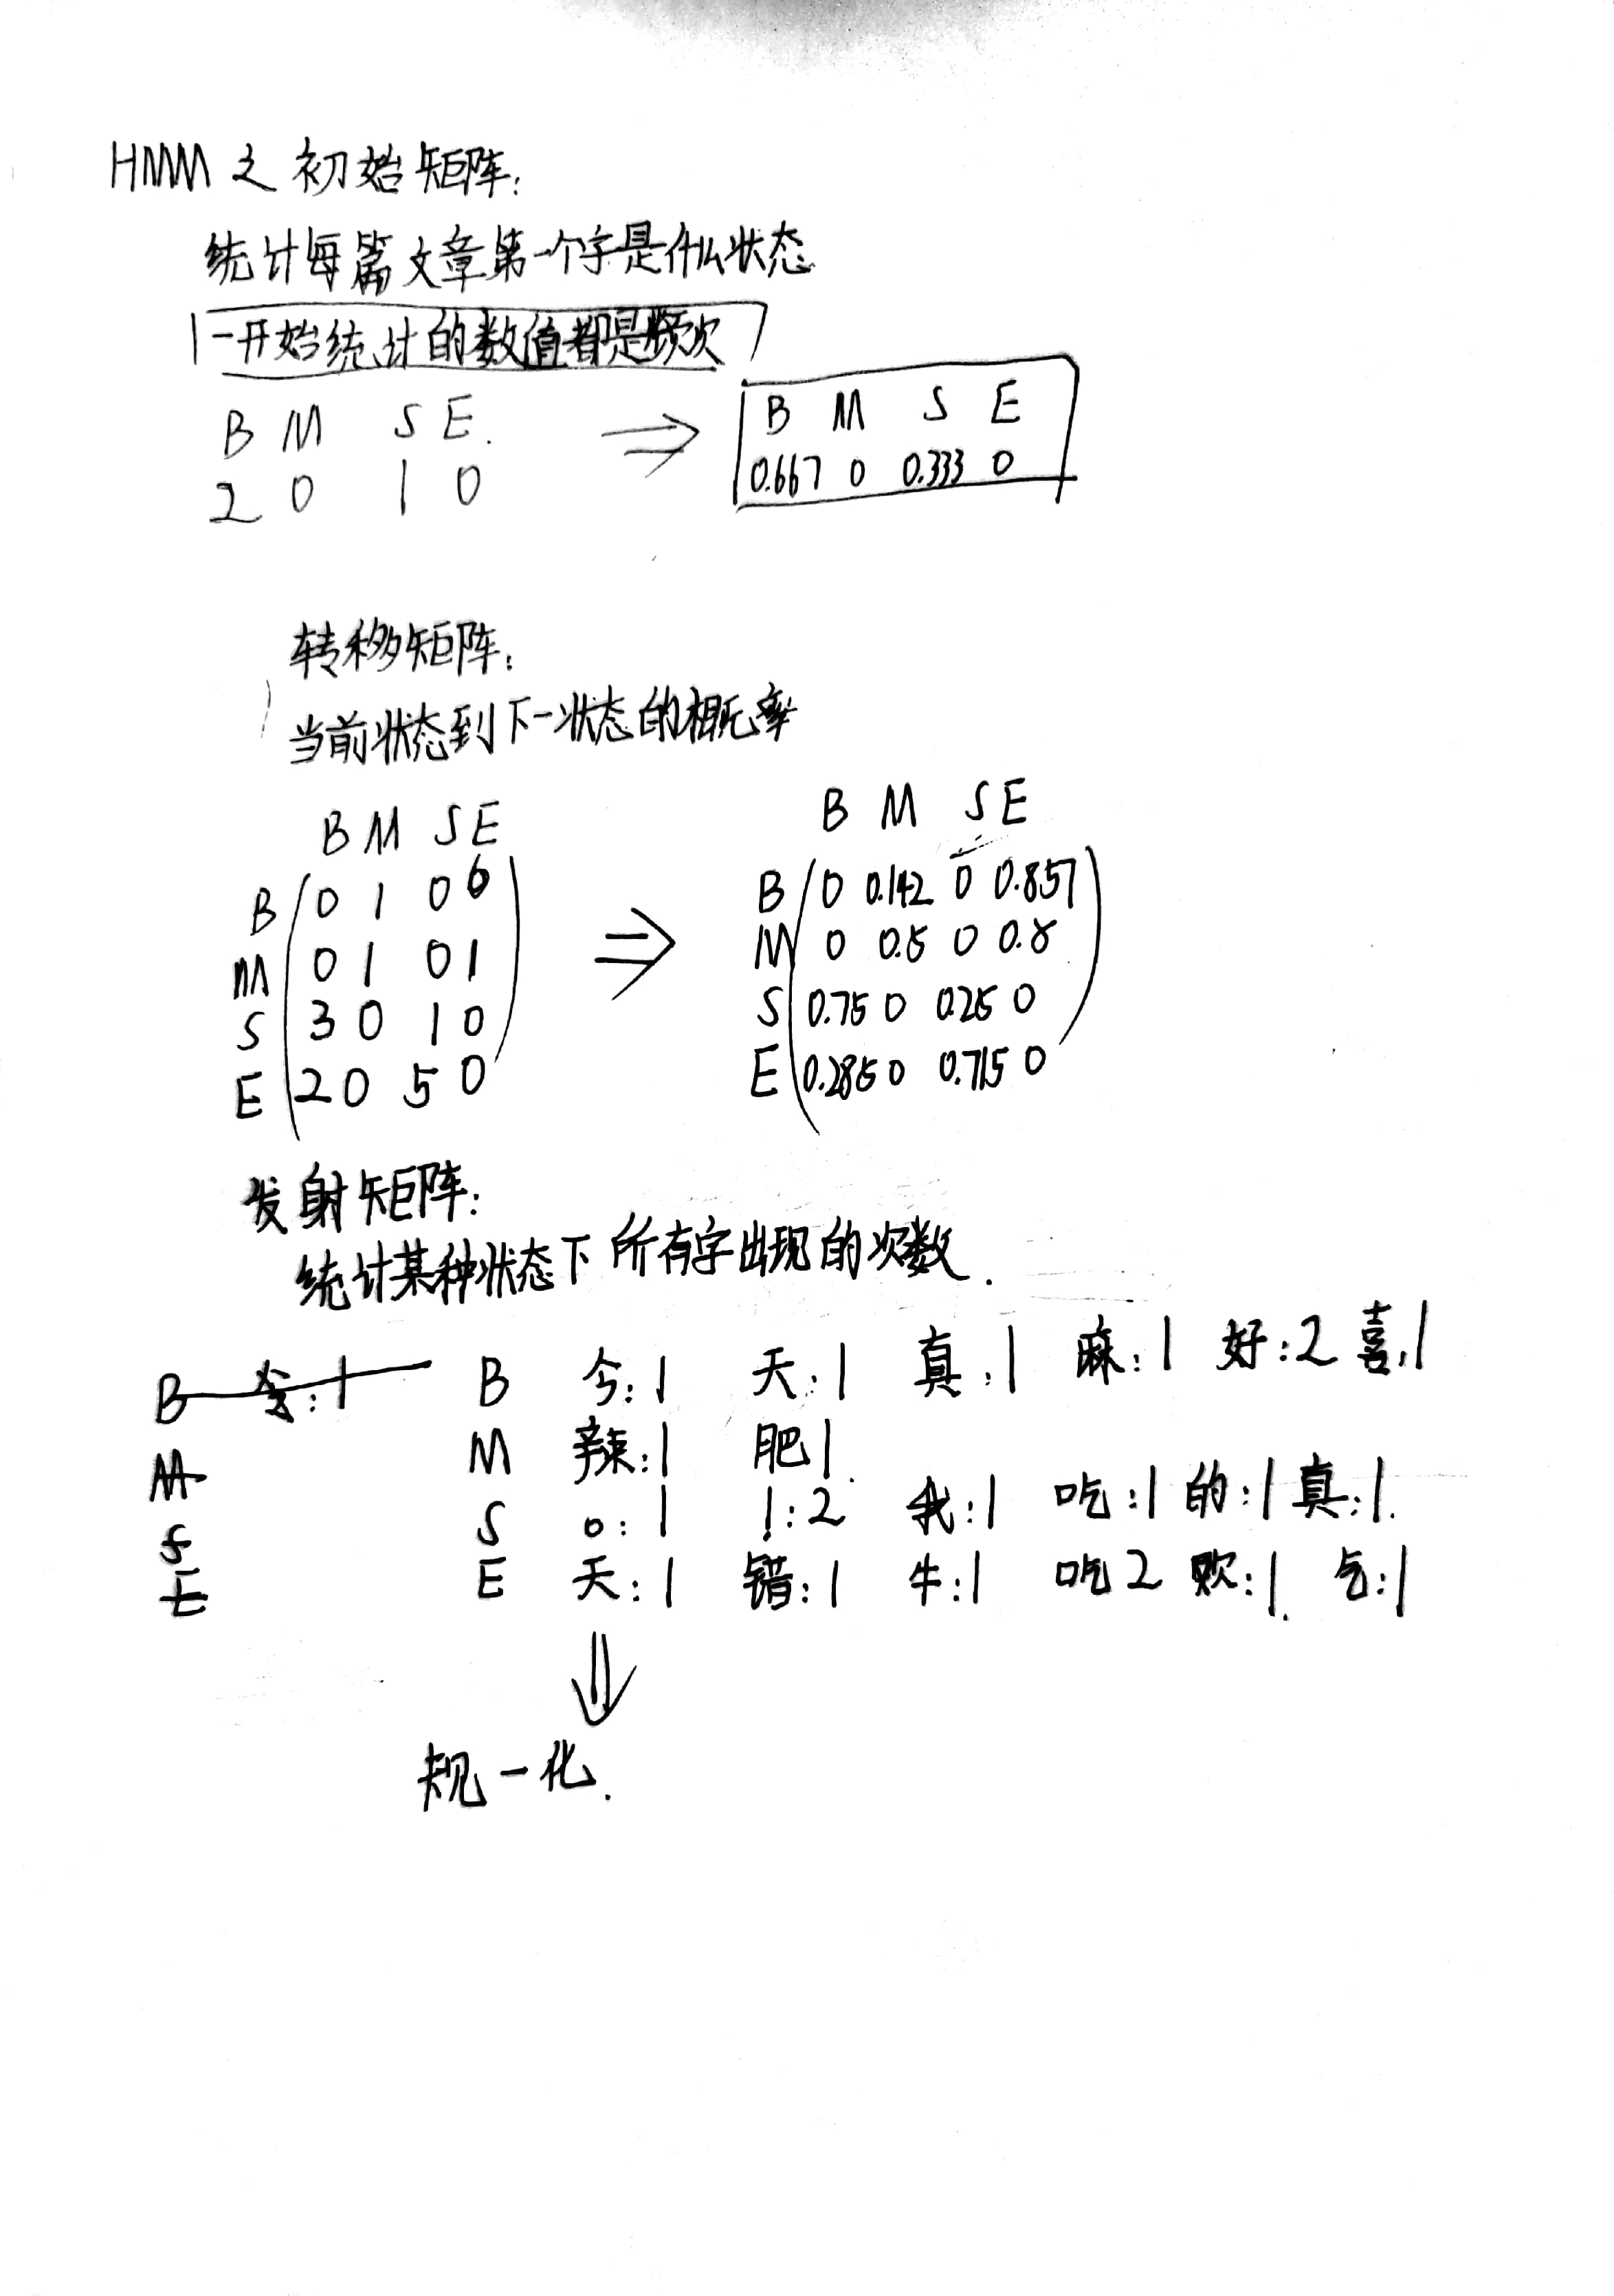 HMM 之 初始矩阵:
统计每篇文章第一个字是什么状态
一开始统计的数值都是频次
B M S E.
2 0 1 0
⇒
B M S E
0.667 0 0.333 0
转移矩阵:
当前状态到下一状态的概率
B M S E
B 0 1 0 6
M 0 1 0 1
S 3 0 1 0
E 2 0 5 0
⇒
B M S E
B 0 0.142 0 0.857
M 0 0.5 0 0.5
S 0.75 0 0.25 0
E 0.285 0 0.715 0
发射矩阵:
统计某种状态下所有字出现的次数.
B 今:1 天:1 真:1 麻:1 好:2 喜:1
M 辣:1 肥1.
S 。:1 !:2 我:1 吃:1 的:1 真:1.
E 天:1 错:1 牛:1 吃2 欢:1. 气:1
B
M
S
E
⇓
规一化.